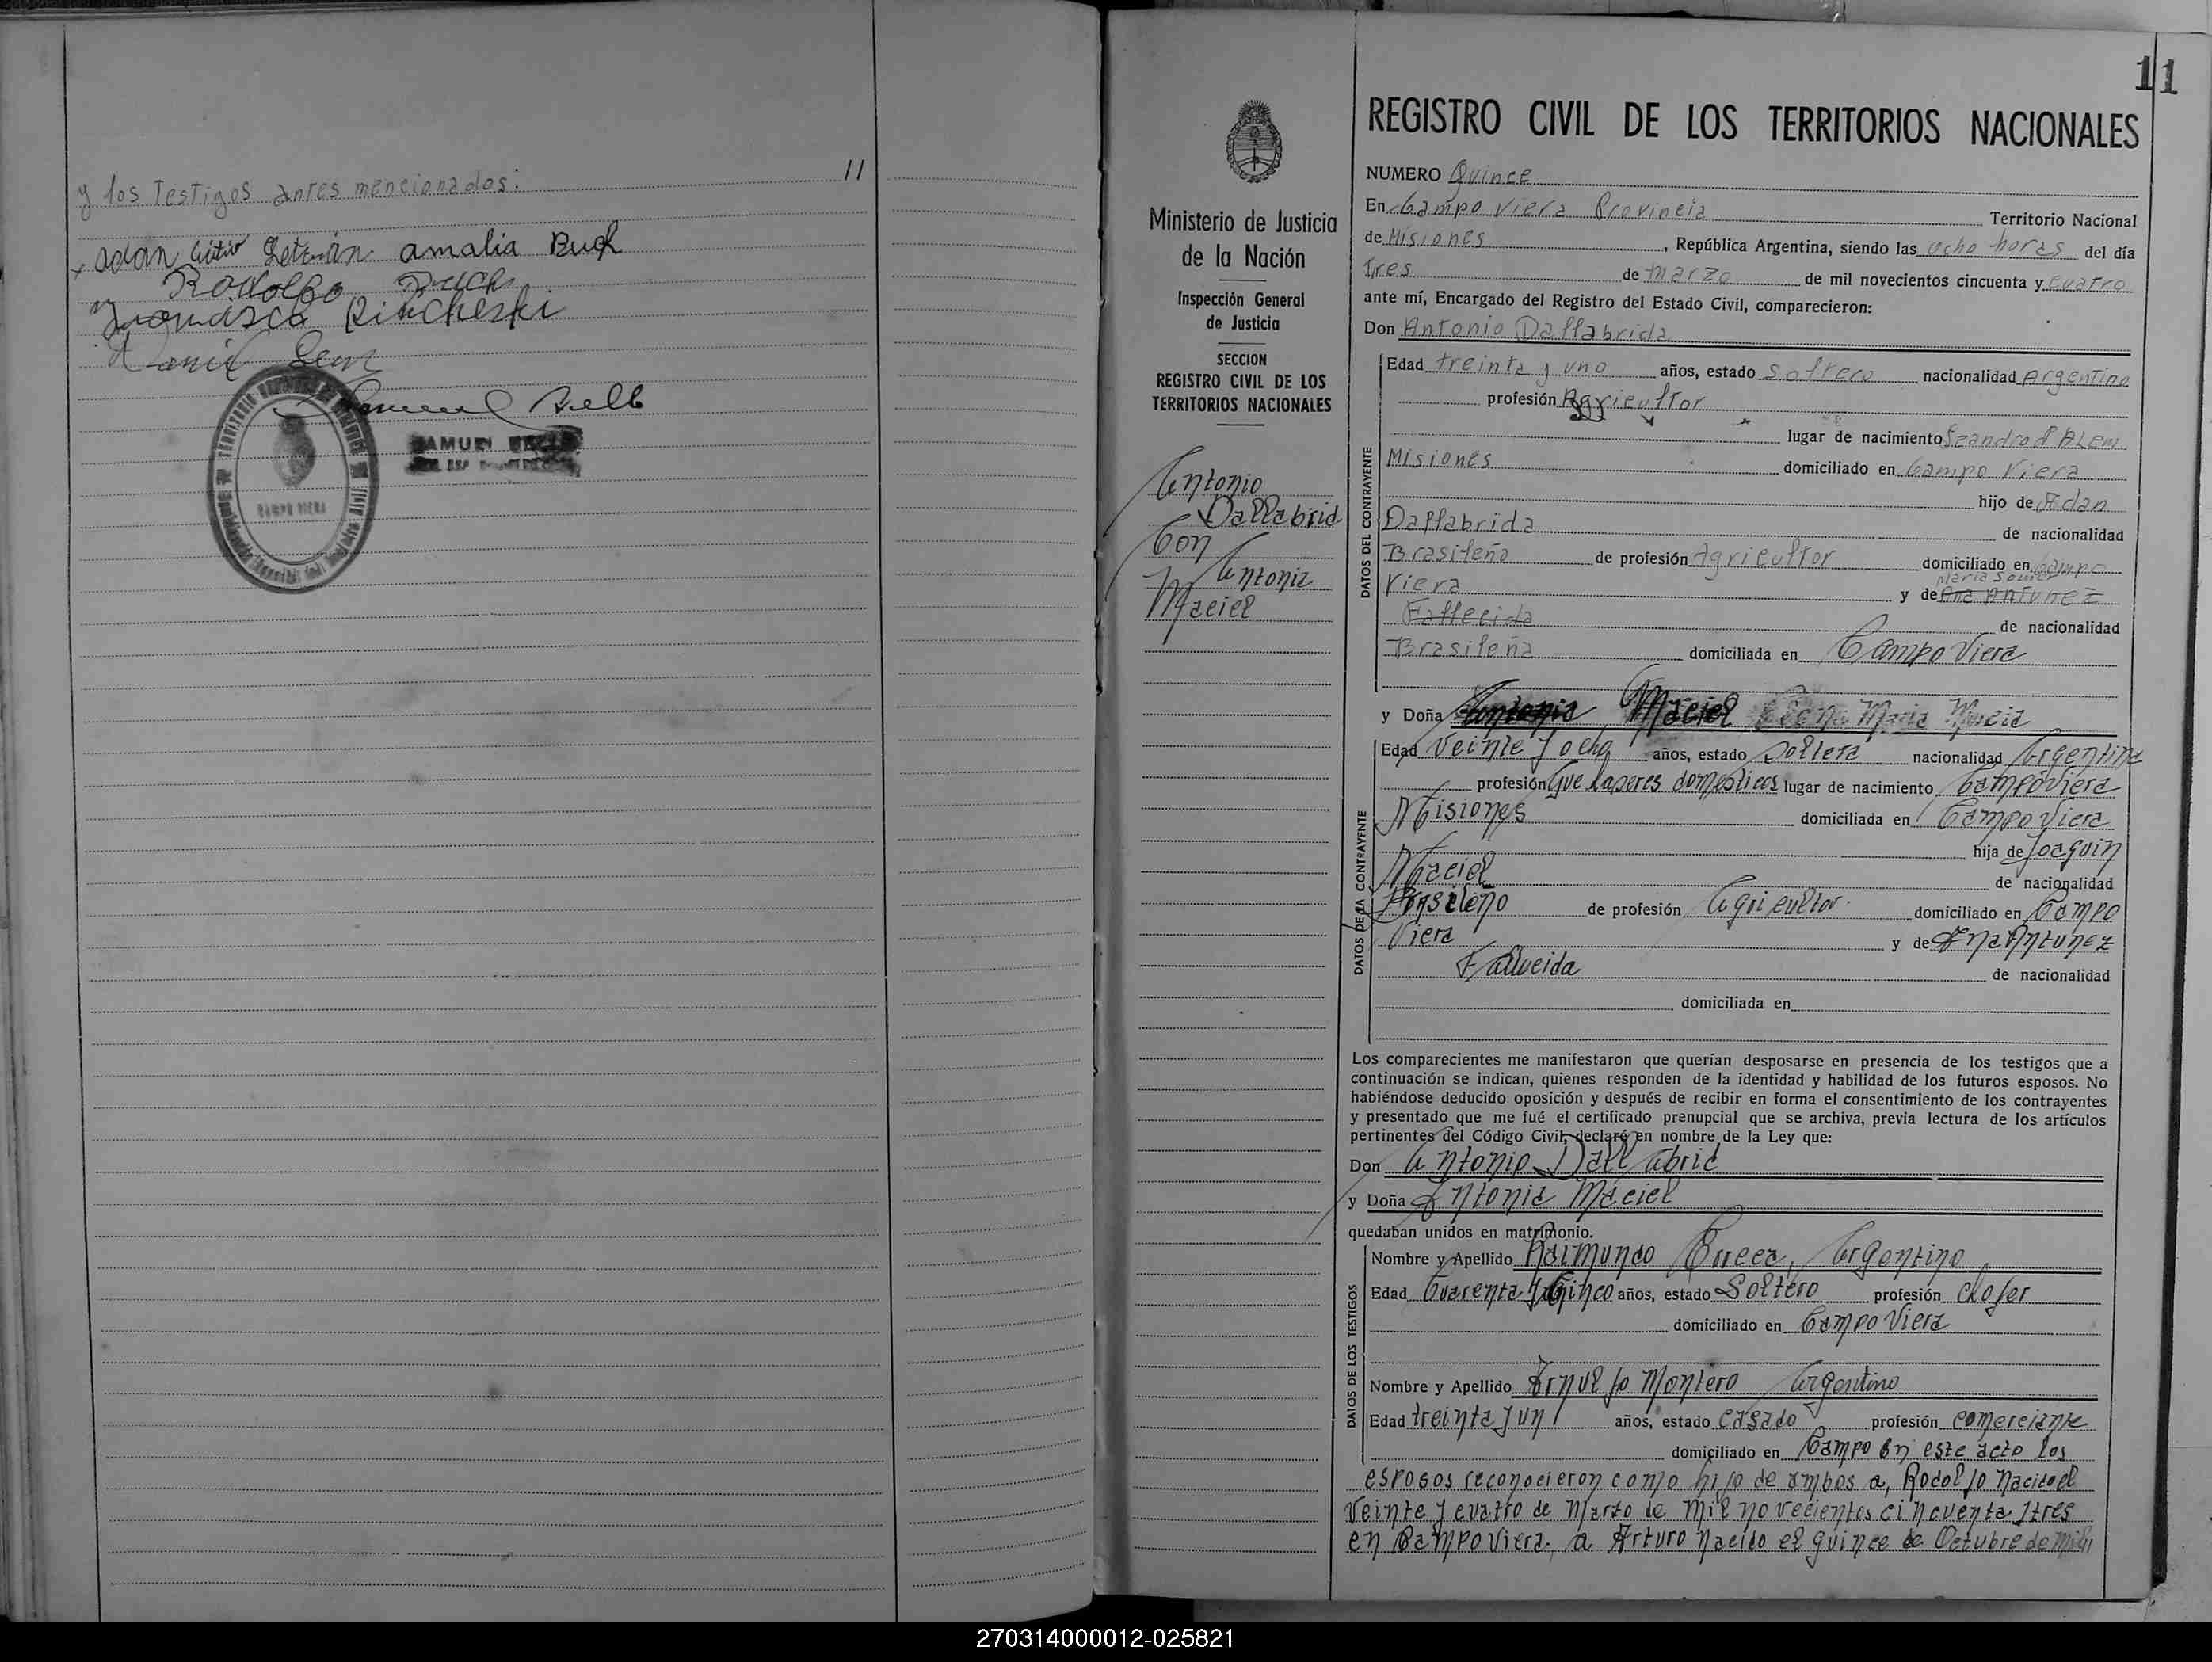 11
y los Testigos antes mencionados:
amalia Buch
Rodolfo Buch
CAMPO VIERA
11
REGISTRO CIVIL DE LOS TERRITORIOS NACIONALES
Ministerio de Justicia
de la Nación
Inspección General
de Justicia
SECCION
REGISTRO CIVIL DE LOS
TERRITORIOS NACIONALES
Antonio
Dallabrid
Con
Antonia
Maciel
NUMERO Quince
En Campo Viera Provincia Territorio Nacional
de Misiones, República Argentina, siendo las ocho horas del día
tres de marzo de mil novecientos cincuenta y cuatro
ante mí, Encargado del Registro del Estado Civil, comparecieron:
Don Antonio Dallabrida
DATOS DEL CONTRAYENTE
Edad treinta y uno años, estado Soltero nacionalidad Argentina
profesión Agricultor
lugar de nacimiento Leandro N ALem
Misiones domiciliado en Campo Viera
hijo de Adan
Dallabrida de nacionalidad
Brasileña de profesión Agricultor domiciliado en Campo
Viera y de Ana Antunez
Fallecida de nacionalidad
Brasileña domiciliada en Campo Viera
y Doña Antonia Maciel
DATOS DE LA CONTRAYENTE
Edad Veinte y ocho años, estado Soltera nacionalidad Argentina
profesión Que haseres domesticos lugar de nacimiento Campo Viera
Misiones domiciliada en Campo Viera
hija de Joaquin
Maciel de nacionalidad
Brasileño de profesión Agricultor domiciliado en Campo
Viera y de Ana Antunez
de nacionalidad
domiciliada en
Los comparecientes me manifestaron que querían desposarse en presencia de los testigos que a
continuación se indican, quienes responden de la identidad y habilidad de los futuros esposos. No
habiéndose deducido oposición y después de recibir en forma el consentimiento de los contrayentes
y presentado que me fué el certificado prenupcial que se archiva, previa lectura de los artículos
pertinentes del Código Civil, declaré en nombre de la Ley que:
Don Antonio Dallabrid
y Doña Antonia Maciel
quedaban unidos en matrimonio.
DATOS DE LOS TESTIGOS
Nombre y Apellido Raimundo Argentino
Edad Cuarenta y Cinco años, estado Soltero profesión chofer
domiciliado en Campo Viera
Nombre y Apellido Arnulfo Montero Argentino
Edad treinta y un años, estado casado profesión comerciante
domiciliado en Campo En este acto los
esposos reconocieron como hijo de ambos a, Rodolfo nacido el
veinte y cuatro de Marzo de mil novecientos cincuenta y tres
en Campo Viera, a Arturo nacido el quince de Octubre de mil
270314000012-025821